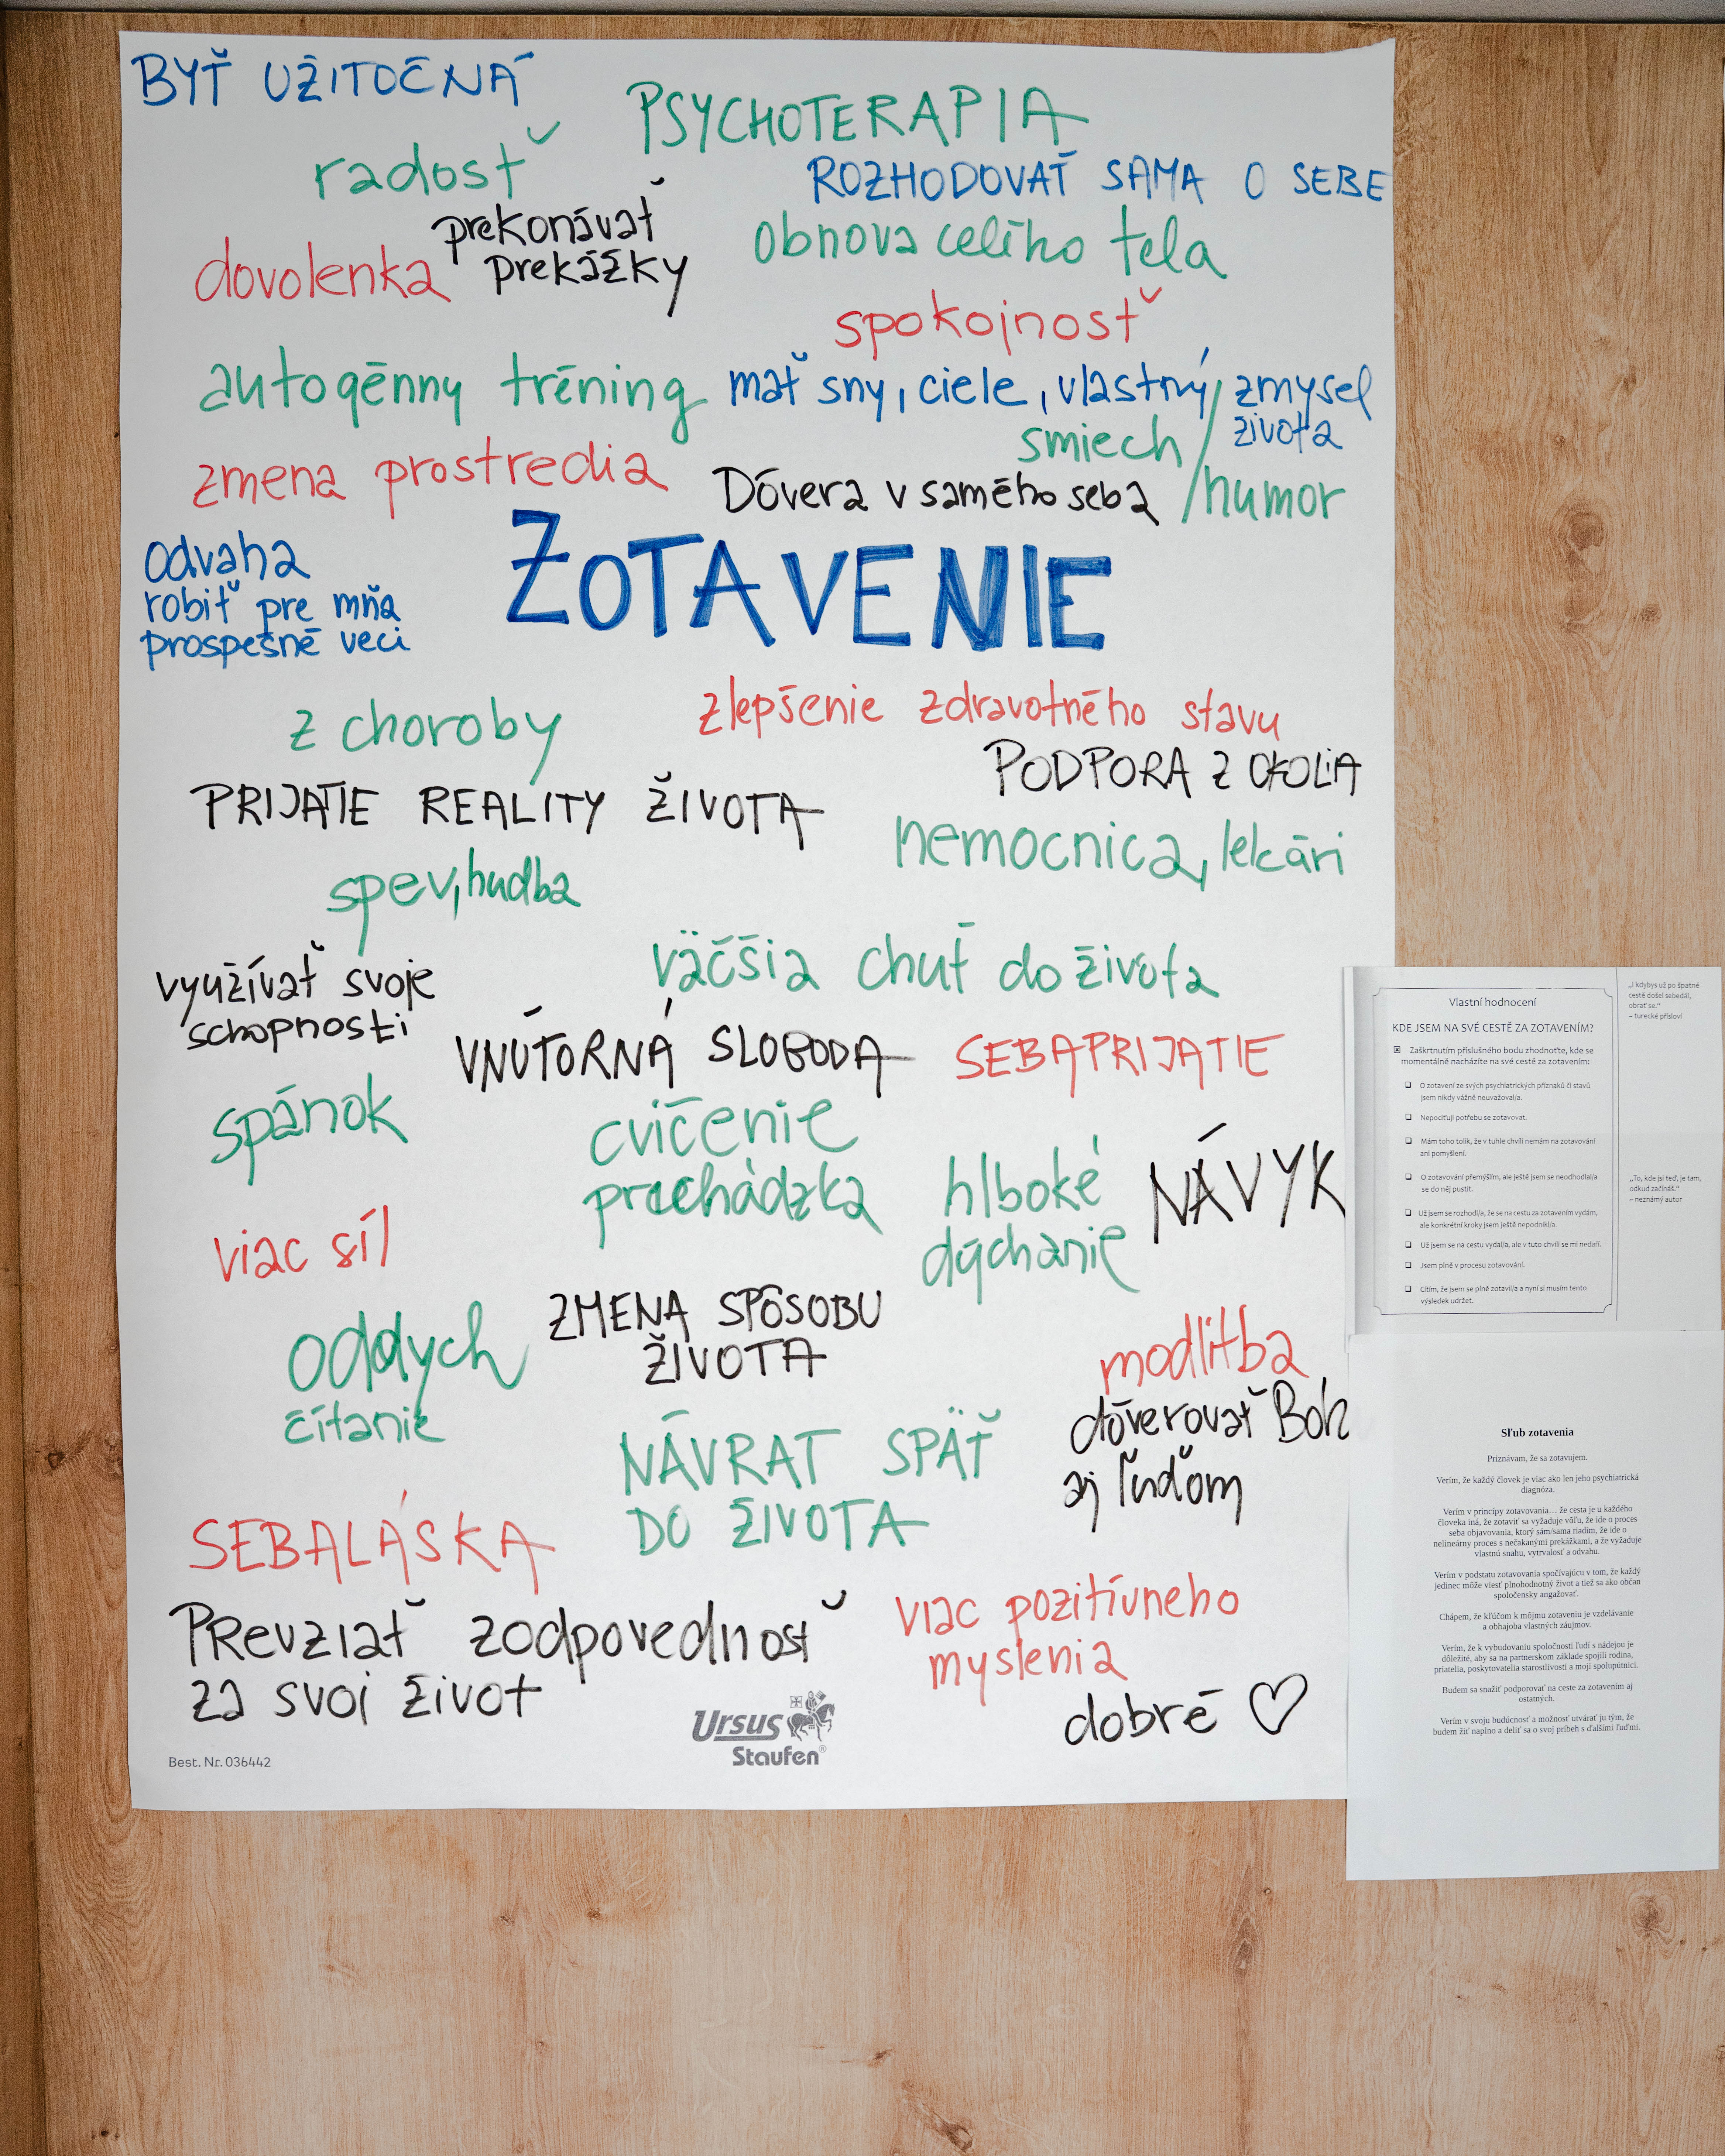 BYŤ UŽITOČNÁ
PSYCHOTERAPIA
radosť
ROZHODOVAŤ SAMA O SEBE
prekonávať
prekážky
obnova celího tela
dovolenka
spokojnosť
autogénny tréning
mať sny, ciele, vlastný zmysel
života
smiech /
humor
zmena prostredia
Dóvera v samého seba
ZOTAVENIE
odvaha
robiť pre mňa
prospešné veci
z choroby
zlepšenie zdravotného stavu
PODPORA Z OKOLIA
PRIJATIE REALITY ŽIVOTA
nemocnica, lekári
spev, hudba
väčšia chuť do života
využívať svoje
schopnosti
VNÚTORNÁ SLOBODA
SEBAPRIJATIE
spánok
cvičenie
prechádzka
hlboké
dýchanie
NÁVYK
viac síl
ZMENA SPÔSOBU
ŽIVOTA
oddych
čítanie
modlitba
dôverovať Boh
aj ľuďom
NÁVRAT SPÄŤ
DO ŽIVOTA
SEBALÁSKA
PREVZIAť zodpovednosť
za svoj život
viac pozitívneho
myslenia
dobré
Ursus
Staufen®
Best. Nr. 036442
Vlastní hodnocení
KDE JSEM NA SVÉ CESTĚ ZA ZOTAVENÍM?
Zaškrtnutím příslušného bodu zhodnoťte, kde se
momentálně nacházíte na své cestě za zotavením:
O zotavení ze svých psychiatrických příznaků či stavů
jsem nikdy vážně neuvažoval/a.
Nepociťuji potřebu se zotavovat.
Mám toho tolik, že v tuhle chvíli nemám na zotavování
ani pomyšlení.
O zotavování přemýšlím, ale ještě jsem se neodhodlal/a
se do něj pustit.
Už jsem se rozhodl/a, že se na cestu za zotavením vydám,
ale konkrétní kroky jsem ještě nepodnikl/a.
Už jsem se na cestu vydal/a, ale v tuto chvíli se mi nedaří.
Jsem plně v procesu zotavování.
Cítím, že jsem se plně zotavil/a a nyní si musím tento
výsledek udržet.
„I kdybys už po špatné
cestě došel sebedál,
obrať se."
– turecké přísloví
„To, kde jsi teď, je tam,
odkud začínáš."
– neznámý autor
Sľub zotavenia
Priznávam, že sa zotavujem.
Verím, že každý človek je viac ako len jeho psychiatrická
diagnóza.
Verím v princípy zotavovania… že cesta je u každého
človeka iná, že zotaviť sa vyžaduje vôľu, že ide o proces
seba objavovania, ktorý sám/sama riadim, že ide o
nelineárny proces s nečakanými prekážkami, a že vyžaduje
vlastnú snahu, vytrvalosť a odvahu.
Verím v podstatu zotavovania spočívajúcu v tom, že každý
jedinec môže viesť plnohodnotný život a tiež sa ako občan
spoločensky angažovať.
Chápem, že kľúčom k môjmu zotaveniu je vzdelávanie
a obhajoba vlastných záujmov.
Verím, že k vybudovaniu spoločnosti ľudí s nádejou je
dôležité, aby sa na partnerskom základe spojili rodina,
priatelia, poskytovatelia starostlivosti a moji spolupútnici.
Budem sa snažiť podporovať na ceste za zotavením aj
ostatných.
Verím v svoju budúcnosť a možnosť utvárať ju tým, že
budem žiť naplno a deliť sa o svoj príbeh s ďalšími ľuďmi.